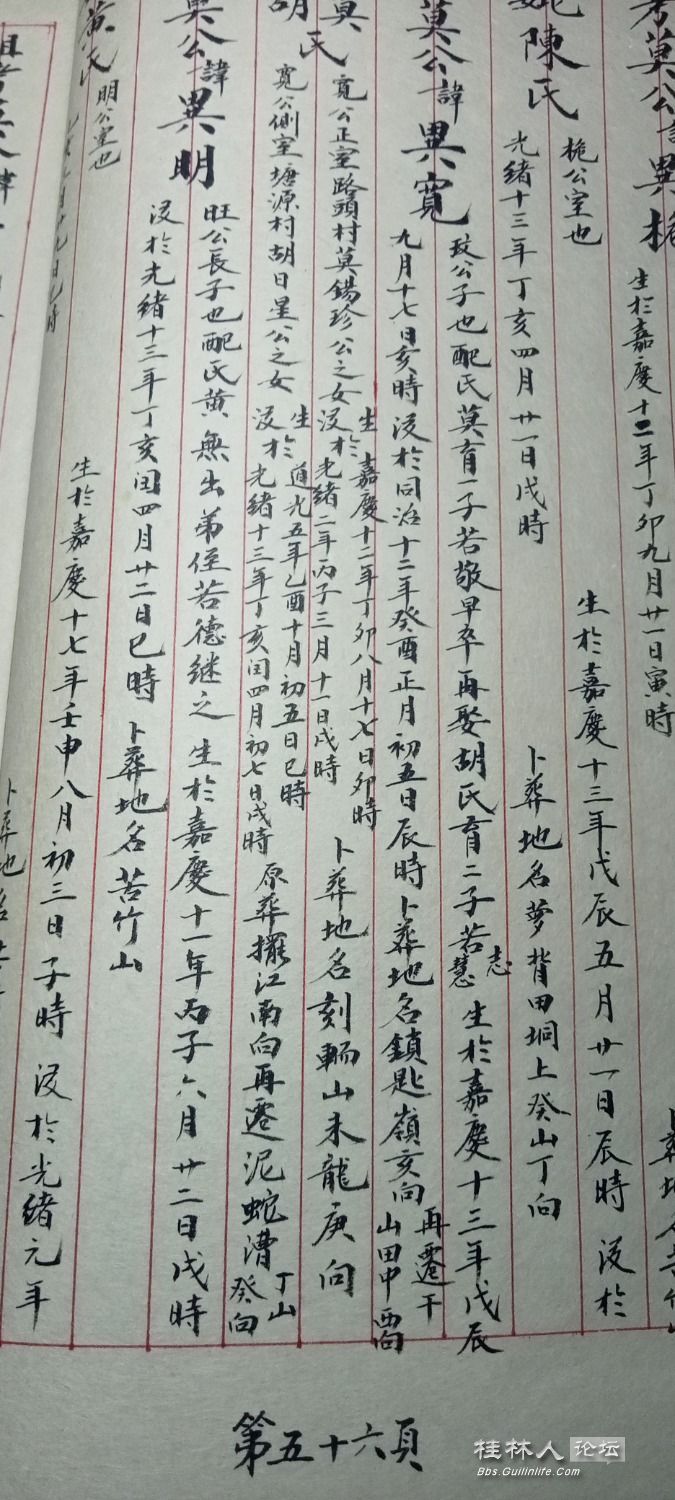 考莫公諱異桅
生於嘉慶十二年丁卯九月廿一日寅時
卜葬地名苦竹山
妣陳氏
桅公室也
生於嘉慶十三年戊辰五月廿一日辰時 沒於
光緒十三年丁亥四月廿一日戌時
卜葬地名萝背田垌上癸山丁向
莫公諱異寬
玟公子也配氏莫育一子若敬早卒再娶胡氏育二子若志慧 生於嘉慶十三年戊辰
九月十七日亥時 沒於同治十二年癸酉正月初五日辰時卜葬地名鎖匙嶺亥向再遷干山田中
莫氏
寬公正室路頭村莫錫珍公之女
生於嘉慶十二年丁卯八月十七日卯時
沒於光緒二年丙子三月十一日戌時
卜葬地名刻輛山未龍庚向
胡氏
寬公側室塘源村胡日星公之女
生於道光五年乙酉十月初五日巳時
沒於光緒十三年丁亥闰四月初七日戌時
原葬擺江南向再遷泥蛇漕丁山癸向
莫公諱異明
旺公長子也配氏黄 無出弟侄若德继之 生於嘉慶十一年丙子六月廿二日戌時
沒於光緒十三年丁亥闰四月廿二日巳時 卜葬地名苦竹山
黄氏
明公室也
生於嘉慶十七年壬申八月初三日子時 沒於光緒元年
月廿九日巳時
卜葬地名
第五十六頁
桂林人论坛
Bbs.Guilinlife.Com